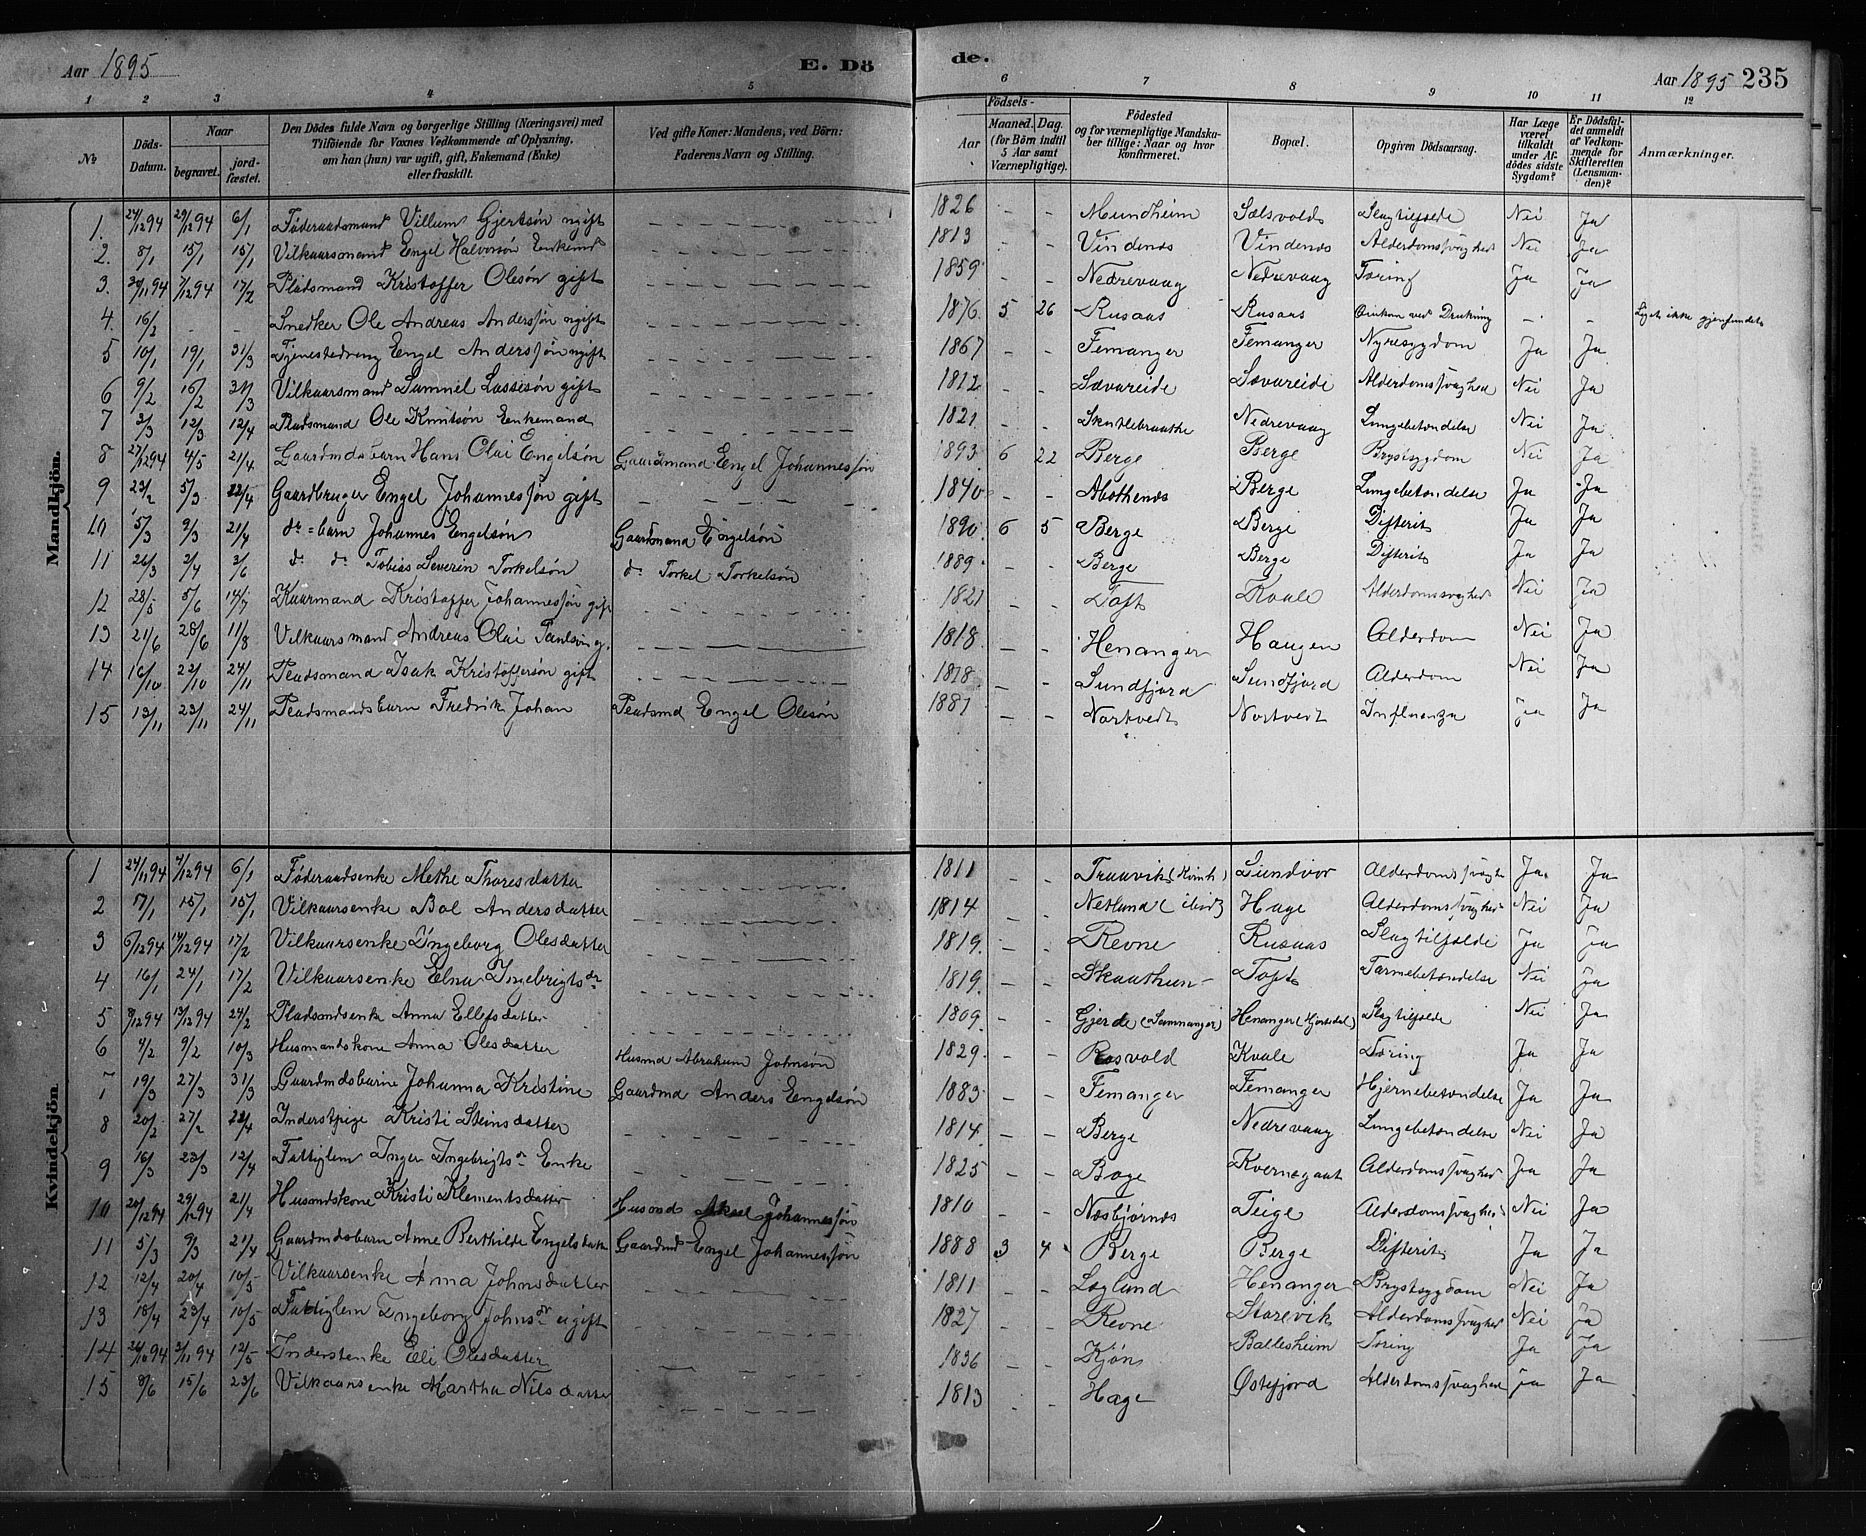 Aar 1895 E. Dö
de. Aar 1895 235
1 2 3 4 5 6 7 8 9 10 11 12
No
Döds-Datum.
Naar
begravet.
jordfæstet.
Den Dödes fulde Navn og borgerlige Stilling (Næringsvei) med Tilföiende for Voxnes Vedkommende af Oplysning, om han (hun) var ugift, gift, Enkemand (Enke) eller fraskilt.
Ved gifte Koner: Mandens, ved Börn: Faderens Navn og Stilling.
Födsels-
Aar
Maaned. Dag.
(for Börn indtil 5 Aar samt Værnepligtige).
Födested og for værnepligtige Mandskaber tillige: Naar og hvor konfirmeret.
Bopæl.
Opgiven Dödsaarsag.
Har Læge været tilkaldt under Afdödes sidste Sygdom?
Er Dödsfaldet anmeldt af Vedkommende for Skifteretten (Lensmanden)?
Anmærkninger.
Mandkjön.
1. 24/12 94 29/12 94 6/1 Föderaadsmand Villum Gjertsön ugift 1826 - - Mundheim Sælsvold Slagtilfælde Nei Ja
2. 8/1 15/1 15/1 Vilkaarsmand Engel Halvorsön Enkemd 1813 - - Vindenes Vindenes Alderdomssvaghed Nei Ja
3. 30/11 94 7/12 94 17/2 Pladsmand Kristoffer Olesön gift 1859 - - Nedrevaag Nedrevaag Tæring Ja Ja
4. 16/2 - - Snedker Ole Andreas Anderssön ugift 1876 5 26 Rusaas Rusaas Omkom ved Drukning - - Liget ikke gjenfundet
5 10/1 19/1 31/3 Tjenestedreng Engel Anderssön ugift 1867 - - Femanger Femanger Nyresygdom Ja Ja
6 9/2 16/2 31/3 Vilkaarsmand Samuel Lassesön gift 1812 - - Sævareide Sævareide Alderdomssvaghed Nei Ja
7 3/3 12/3 12/4 Pladsmand Ole Knutsön Enkemand 1821 - - Nedrevaag Lungebetændelse Nei Ja
8 27/12 94 4/5 21/4 Gaardmdsbarn Hans Olai Engelsön Gaardmand Engel Johannessön 1893 6 22 Berge Berge Brystsygdom Nei Ja
9 23/2 5/3 22/4 Gaardbruger Engel Johannessön gift 1840 - - Berge Lungebetændelse Ja Ja
10 5/3 9/3 21/4 do barn Johannes Engelsön Gaardmand Engelsön 1890 6 5 Berge Berge Difterit Ja Ja
11 26/3 2/4 3/6 do do Tobias Severin Torkelsön do Torkel Torkelsön 1889 - - Berge Berge Difterit Ja Ja
12 28/5 5/6 14/7 Kaarmand Kristoffer Johannessön gift 1821 - - Toft Kvale Alderdomssvaghed Nei Ja
13 21/6 28/6 11/8 Vilkaarsmand Andreas Olai Paulsön g. 1818 - - Henanger Haugen Alderdom Nei Ja
14 16/10 22/10 24/11 Pladsmand Isak Kristoffersön gift 1818 - - Sundfjord Sundfjord Alderdom Nei Ja
15 13/11 23/11 24/11 Pladsmandsbarn Fredrik Johan Pladsmd Engel Olesön 1887 - - Nortvedt Nortvedt Influenza Ja Ja
Kvindekjön.
1 24/11 94 4/12 94 6/1 Föderaadsenke Methe Thoresdatter 1811 - - Traavik Lundvor Alderdomssvaghed Ja Ja
2 7/1 15/1 15/1 Vilkaarsenke Bol Andersdatter 1814 - - Netland (ibid) Hage Alderdomssvaghed Nei Ja
3 6/12 94 14/12 94 17/2 Vilkaarsenke Ingeborg Olesdatter 1819 - - Revne Rusaas Slagtilfælde Ja Ja
4 16/1 24/1 17/2 Vilkaarsenke Elna Ingebrigtsdr 1819 - - Skaathun Toft Tarmebetændelse Nei Ja
5 8/12 94 13/12 94 24/2 Pladsmdsenke Anna Ellefsdatter 1809 - - Gjerde (Samnanger) Henanger (Hjortedal) Slagtilfælde Nei Ja
6 4/2 9/2 10/3 Husmandskone Anna Olesdatter Husmd Abraham Johnsön 1829 - - Rosvold Kvale Tæring Ja Ja
7 19/3 27/3 31/3 Gaardmdsbarn Johanna Kristine Gaardmd Anders Engelsön 1883 - - Femanger Femanger Hjernebetændelse Ja Ja
8 20/2 27/2 22/4 Inderstpige Kristi Steinsdatter 1814 - - Berge Nedrevaag Lungebetændelse Nei Ja
9 16/3 23/3 12/4 Fattiglem Inger Ingebrigtsdr Enke 1825 - - Boge Kvernegaat Alderdomssvaghed Ja Ja
10 20/12 94 29/12 94 21/4 Husmdskone Kristi Klementsdatter Husmd Aksel Johannessön 1810 - - Næsbjørnes Teige Alderdomssvaghed Nei Ja
11 5/3 9/3 21/4 Gaardmdsbarn Anne Berthilde Engelsdatter Gaardmd Engel Johannessön 1888 3 4 Berge Berge Difterit Ja Ja
12 12/4 20/4 10/5 Vilkaarsenke Anna Johnsdatter 1811 - - Løgland Henanger Brystsygdom Nei Ja
13 18/4 23/4 10/5 Fattiglem Ingeborg Johnsdr ugift 1827 - - Revne Storevik Alderdomssvaghed Nei Ja
14 26/10 94 3/11 94 12/5 Inderstenke Eli Olesdatter 1836 - - Kjøn Ballesheim Tæring Ja Ja
15 8/6 15/6 23/6 Vilkaarsenke Martha Nilsdatter 1813 - - Hage Østefjord Alderdomssvaghed Ja Ja